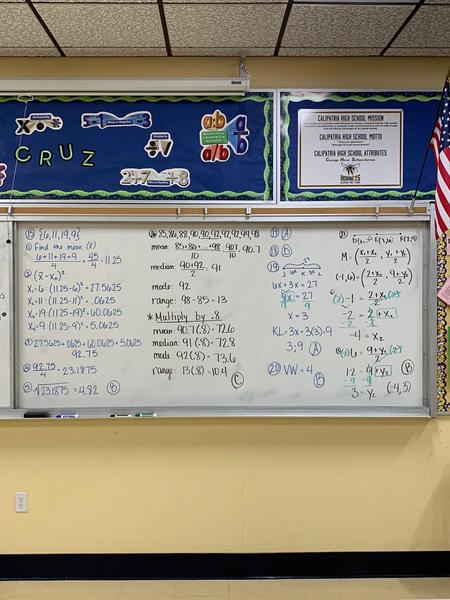 CRUZ
a:b
a/b
CALIPATRIA HIGH SCHOOL MISSION
CALIPATRIA HIGH SCHOOL MOTTO
CALIPATRIA HIGH SCHOOL ATTRIBUTES
HORNETS
⑮ {6, 11, 19, 9}
① Find the mean (x̄)
6+11+19+9 / 4 = 45/4 = 11.25
② (x̄ - xₙ)²
x₁ = 6: (11.25-6)² = 27.5625
x₂ = 11: (11.25-11)² = .0625
x₃ = 19: (11.25-19)² = 60.0625
x₄ = 9: (11.25-9)² = 5.0625
③ 27.5625+.0625+60.0625+5.0625
92.75
④ 92.75/4 = 23.1875
⑤ √23.1875 = 4.82 Ⓑ
85, 86, 88, 90, 90, 92, 92, 92, 94, 98
mean: 85+86+...+98 / 10 = 907/10 = 90.7
median: 90+92 / 2 = 91
mode: 92
range: 98-85 = 13
* Multiply by .8
mean: 90.7(.8) = 72.6
median: 91(.8) = 72.8
mode: 92(.8) = 73.6
range: 13(.8) = 10.4
Ⓒ
⑰ Ⓐ
⑱ Ⓓ
⑲
27
J 6x K 3x L
6x + 3x = 27
9x = 27
9 9
x = 3
KL = 3x = 3(3) = 9
3; 9 Ⓐ
⑳ VW = 4 Ⓑ
㉑
E(-1,6)
M = (x₁+x₂ / 2, y₁+y₂ / 2)
(-1,6) = (2+x₂ / 2, 9+y₂ / 2)
(2) -1 = 2+x₂ / 2 (2)
-2 = 2+x₂
-2 -2
-4 = x₂
(2) 6 = 9+y₂ / 2 (2)
12 = 9+y₂ Ⓑ
-9 -9
3 = y₂ (-4,3)